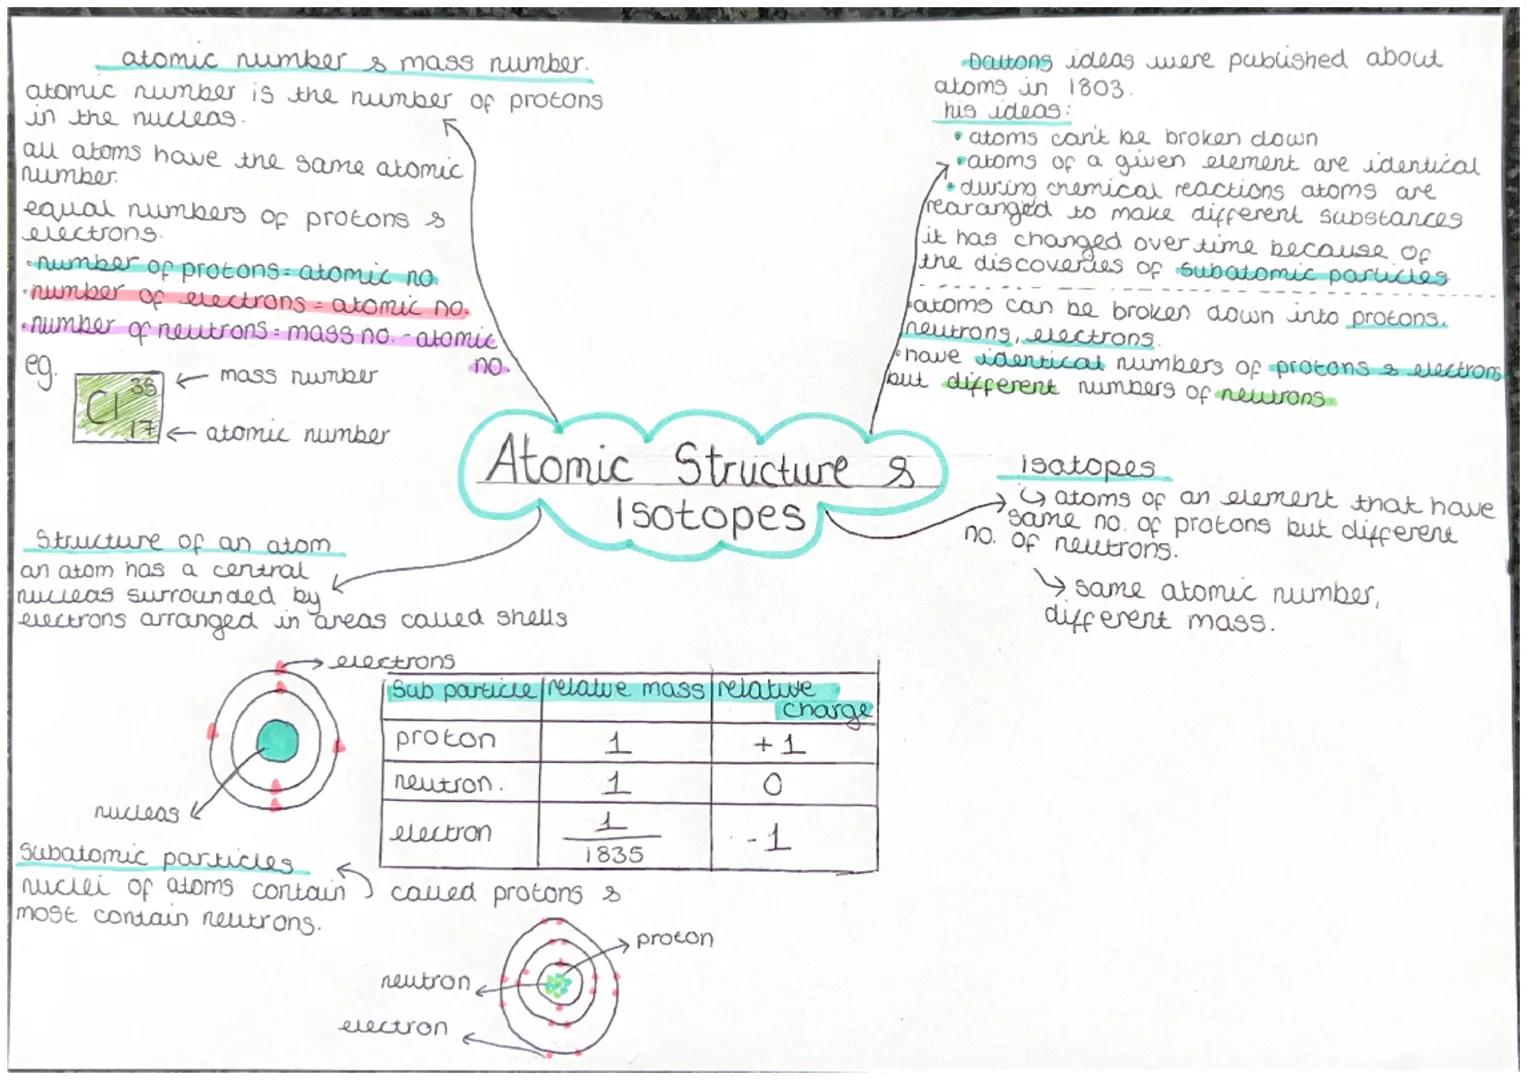 atomic number & mass number.
atomic number is the number of protons
in the nucleas.
all atoms have the same atomic
number.
equal numbers of protons &
electrons.
•number of protons = atomic no.
•number of electrons = atomic no.
•number of neutrons = mass no. - atomic
no.
eg.
Cl 35
17
mass number
atomic number
Daltons ideas were published about
atoms in 1803.
his ideas:
• atoms can't be broken down
• atoms of a given element are identical
• during chemical reactions atoms are
rearanged to make different substances
it has changed over time because of
the discoveries of subatomic particles
•atoms can be broken down into protons,
neutrons, electrons.
•have identical numbers of protons & electrons
but different numbers of neutrons
Atomic Structure &
Isotopes
Isatopes
↳ atoms of an element that have
same no. of protons but different
no. of neutrons.
↳ same atomic number,
different mass.
Structure of an atom
an atom has a central
nucleas surrounded by
electrons arranged in areas called shells
electrons
nucleas
Sub particle relative mass relative
charge
proton 1 +1
neutron. 1 0
electron 1/1835 -1
Subatomic particles
nuclei of atoms contain called protons &
most contain neutrons.
proton
neutron
electron